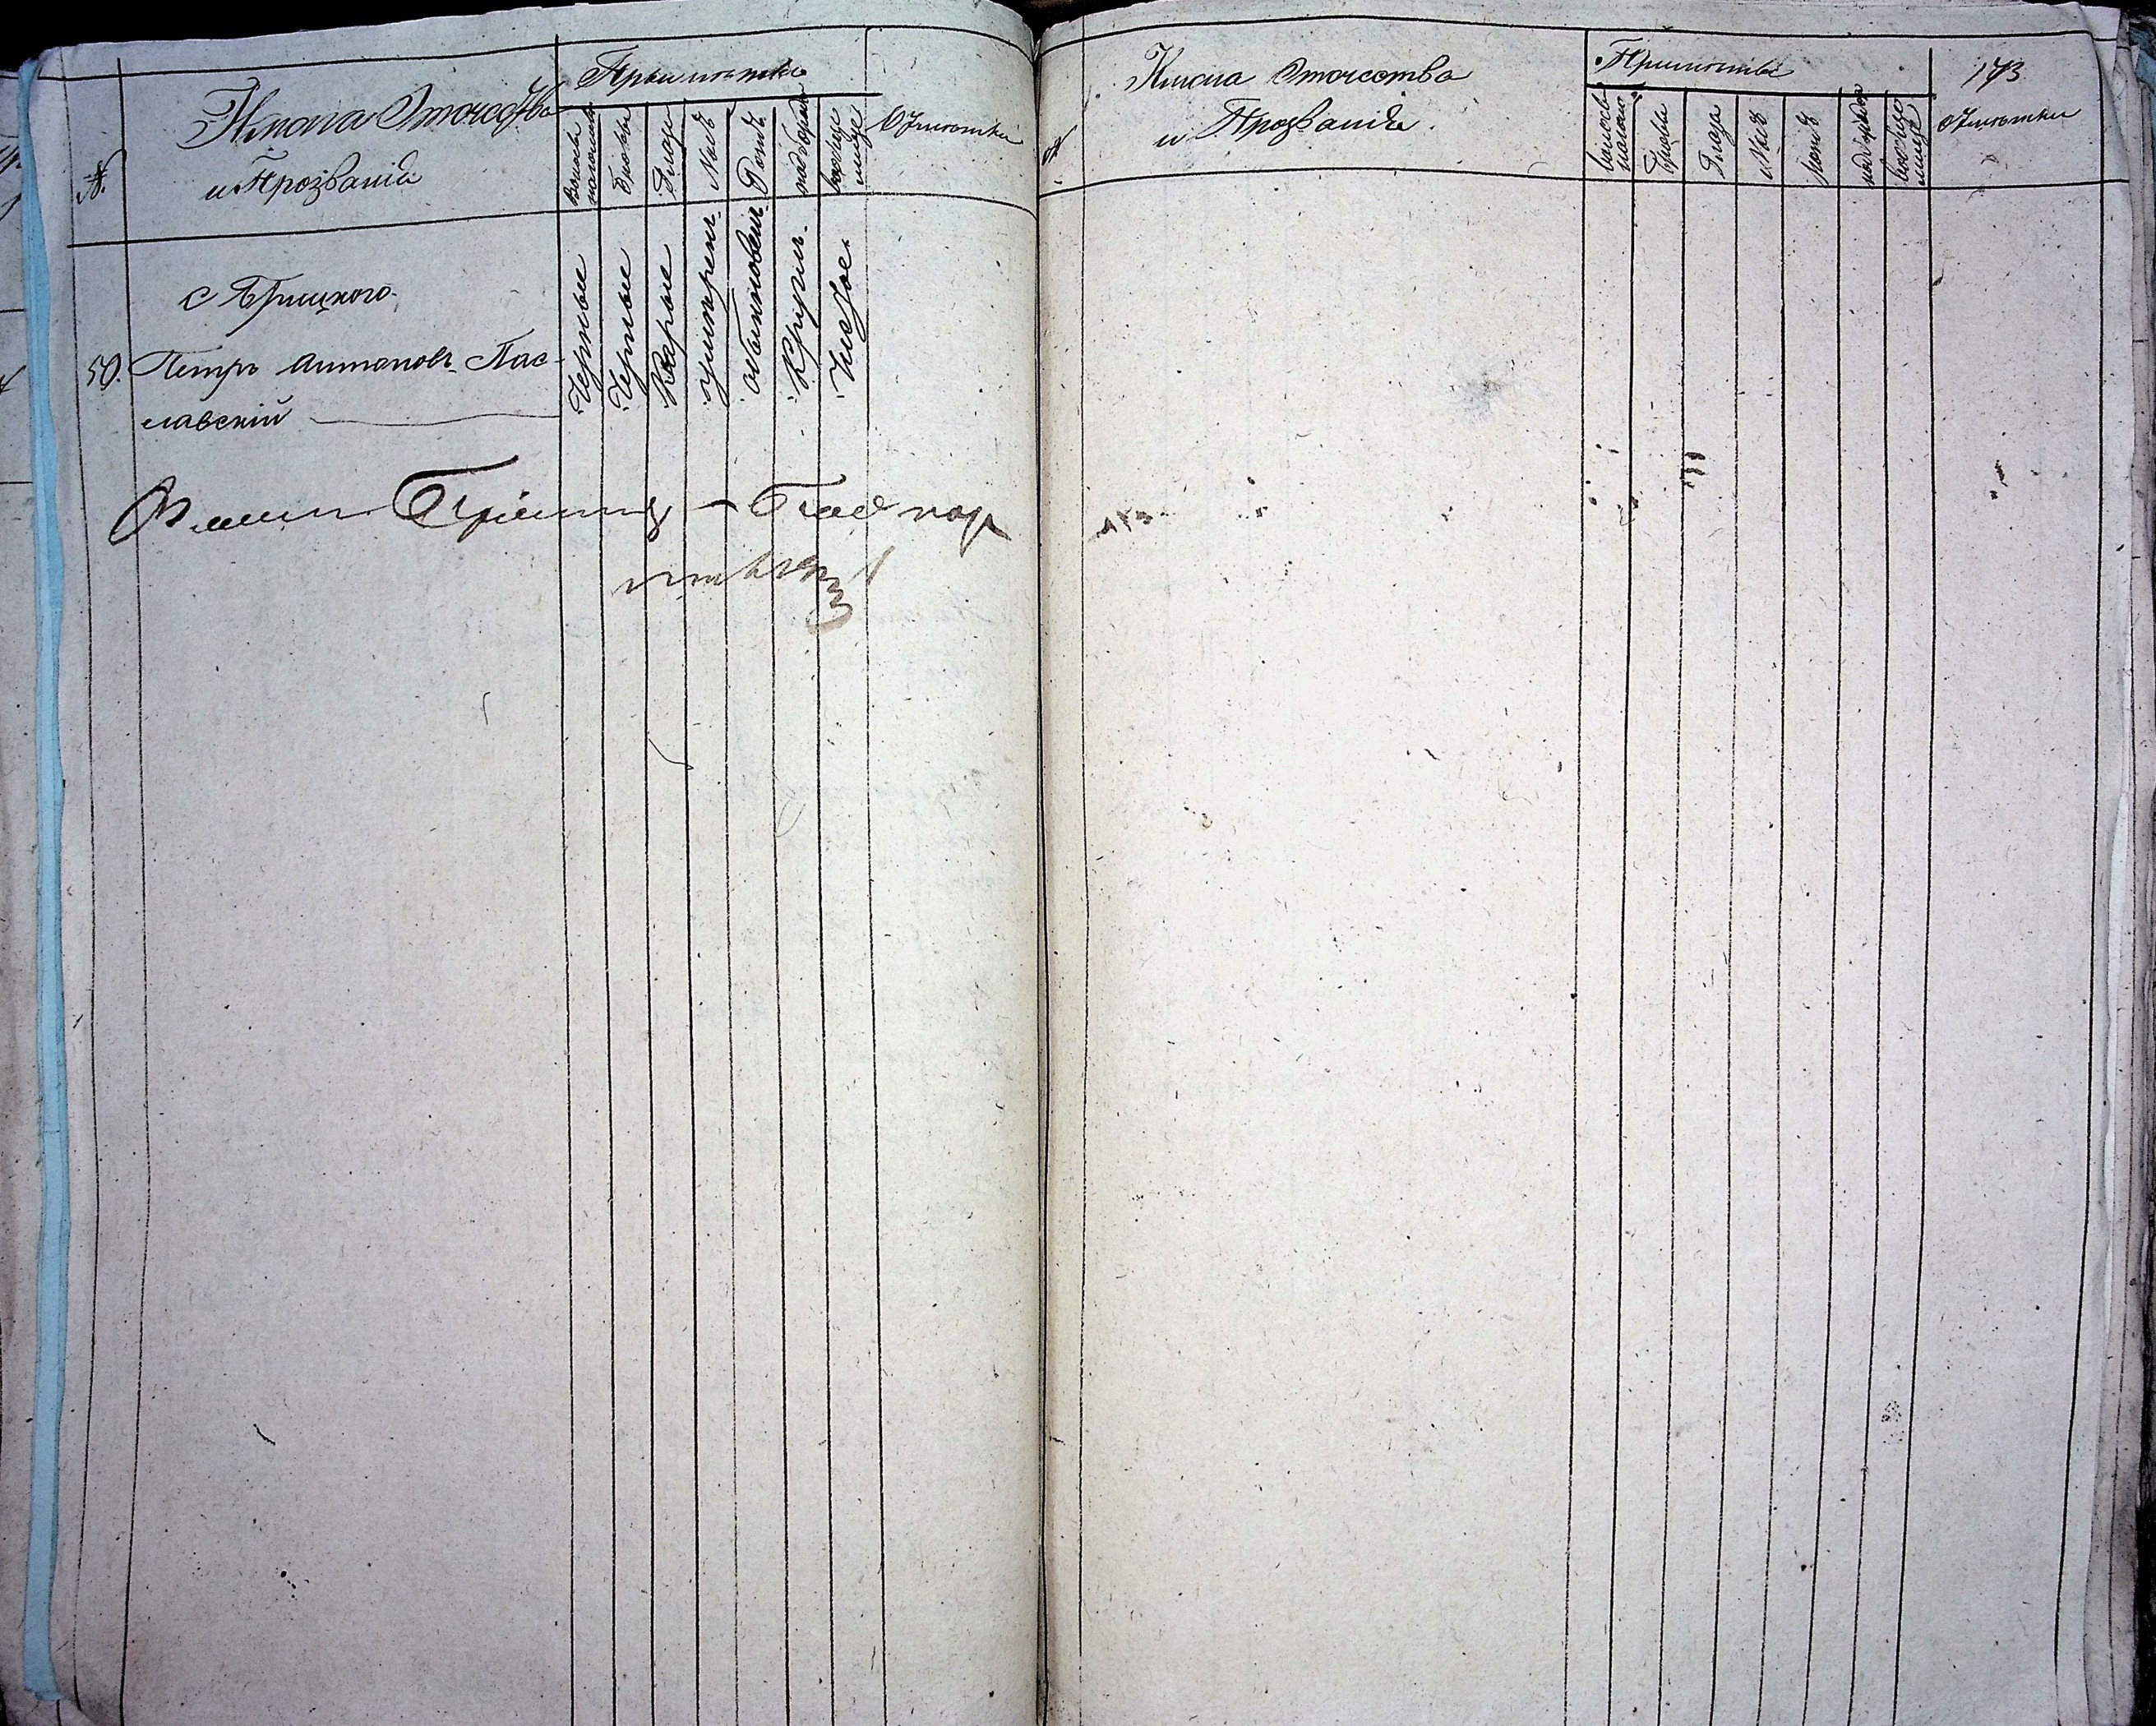 №
Имена Отчества
и Прозвания
Приметы
Волосы
на голове
Брови
Глаза
Носъ
Ротъ
подбородокъ
вообще
лице
Отметки
с Брицкого.
50. Петръ Антоновъ Пас-
лавскій
Черные
Черные
Карые
умирен.
обыкновен.
Кругл.
Чистое
Имена Отчества
и Прозвания.
Приметы
173
волосы
Брови
Глаза
Носъ
ротъ
вообще
лице
отметки